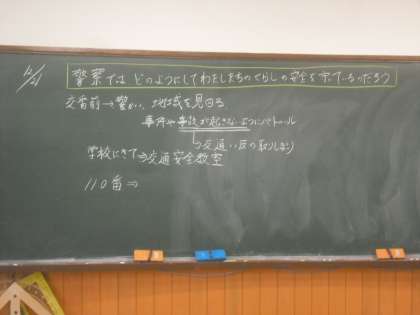 12/21
警察では どのようにしてわたしたちのくらしの安全を守っているのだろう
交番前→警 地域を見回る
事件や事故が起きないようにパトロール
→交通 反の取りしまり
学校にきて⇒交通安全教室
110番⇒